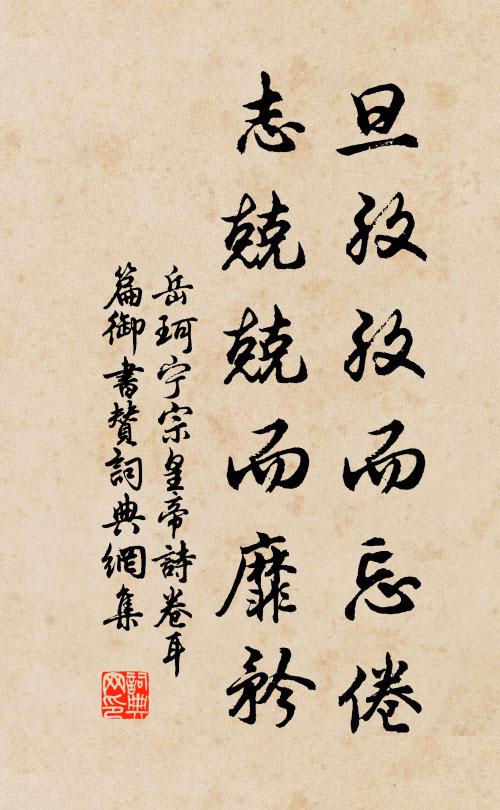 旦孜孜而忘倦
志兢兢而靡矜
岳珂宁宗皇帝詩卷耳
篇御書贊詞典網集
詞典
网印